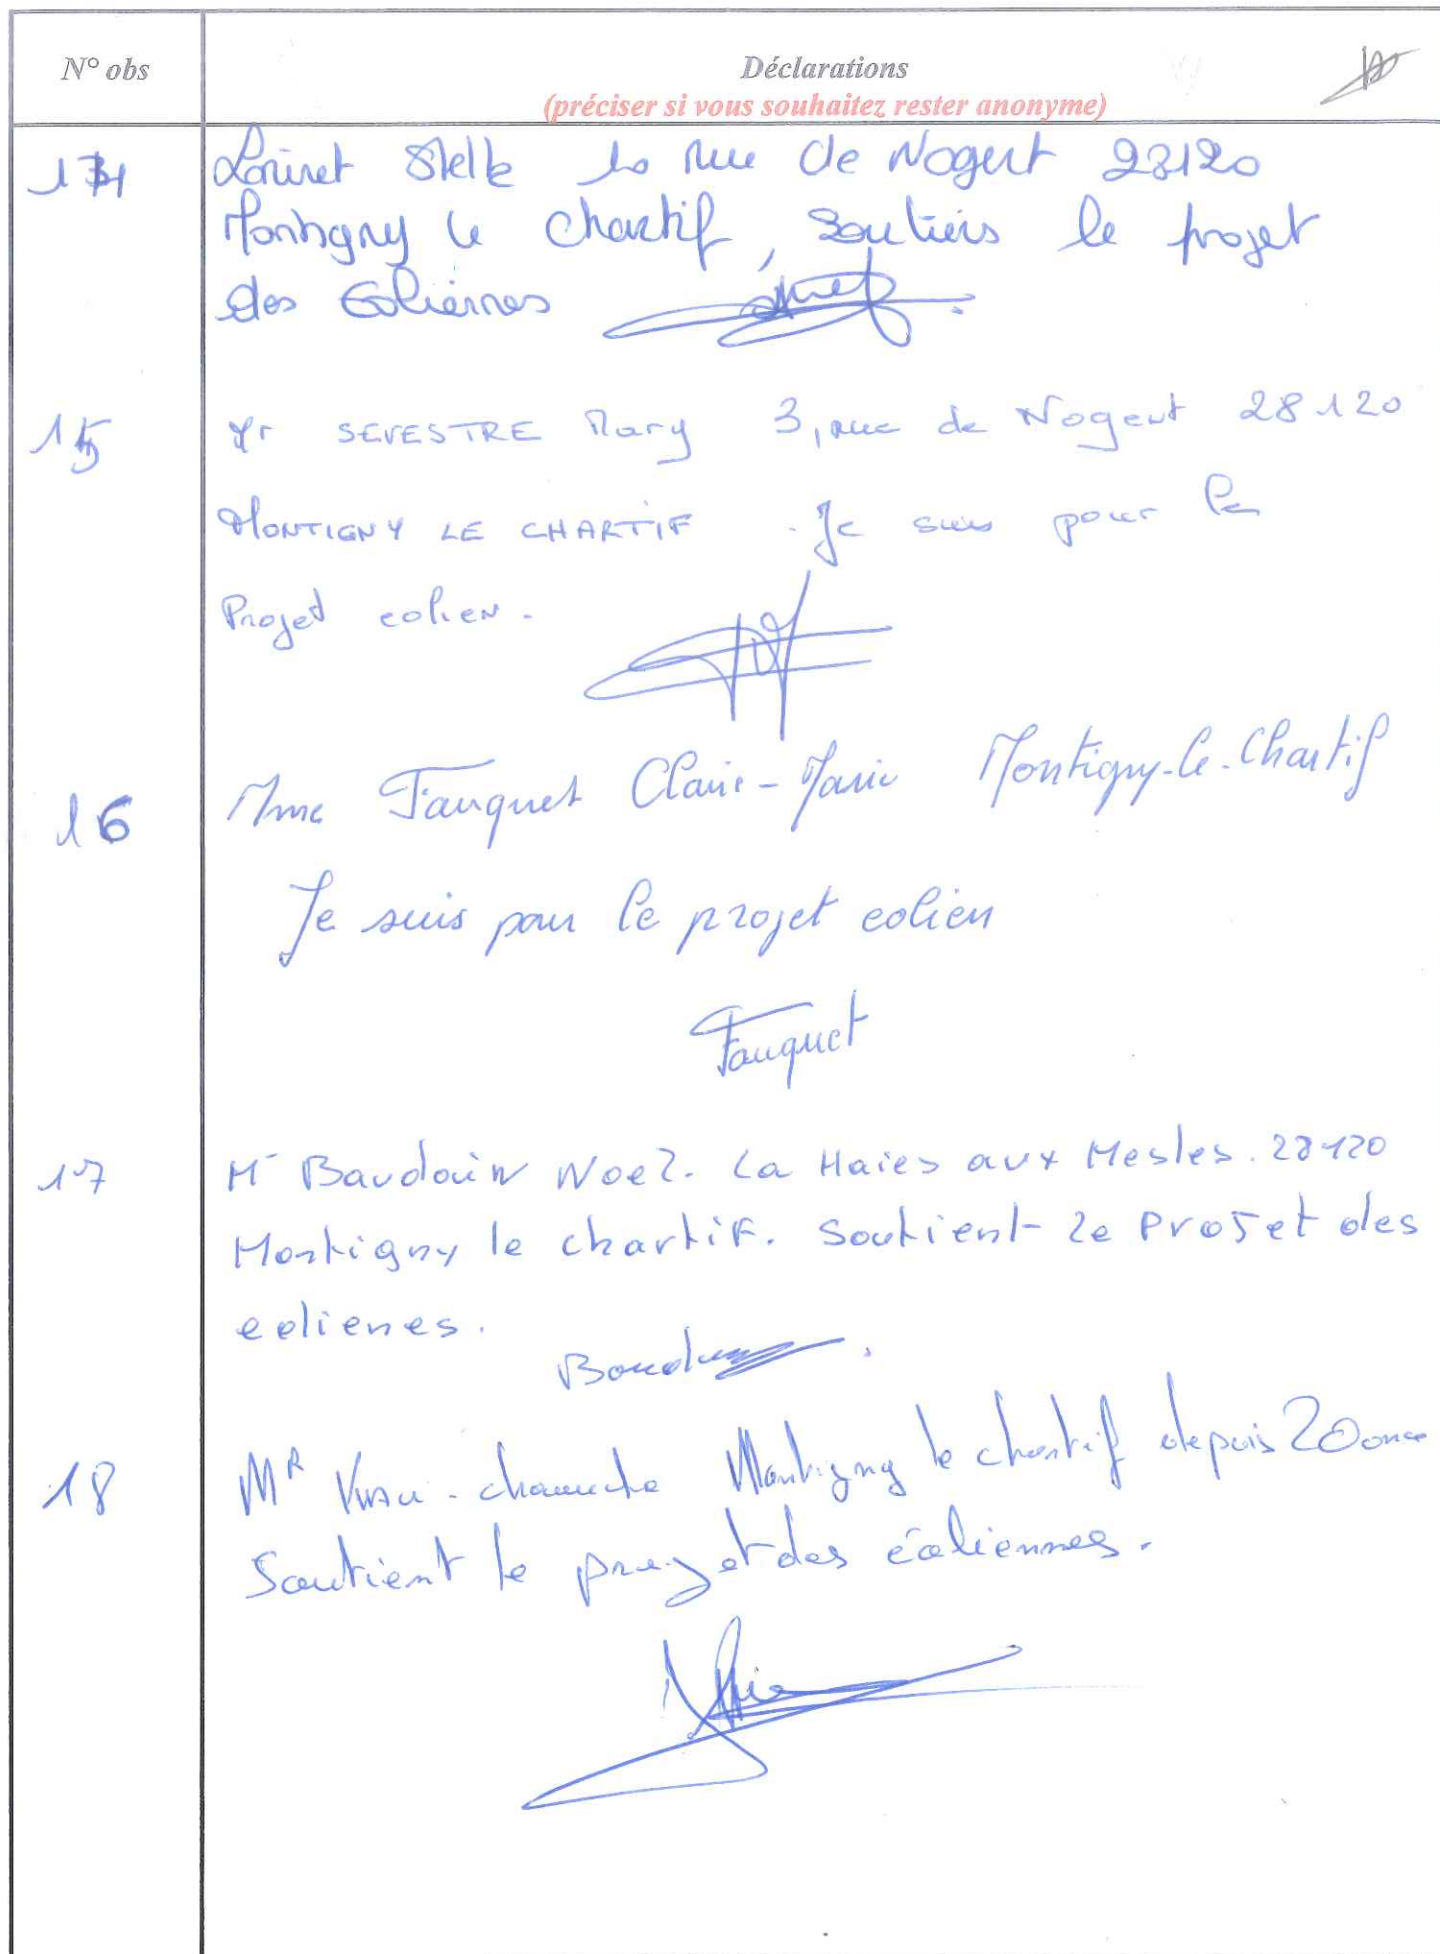 N° obs
Déclarations
(préciser si vous souhaitez rester anonyme)
14 Loriret Stelle 10 Rue de Nogent 28120
Montigny le Chartif, Soutiens le projet
des Eoliennes
15 Mr SEVESTRE Mary 3, rue de Nogent 28120
MONTIGNY LE CHARTIF. Je suis pour le
Projet eolien.
16 Mme Fauquet Claire-Marie Montigny-le-Chartif
Je suis pour le projet eolien
Fauquet
17 Mr Baudouin Noel. La Haies aux Mesles. 28120
Montigny le chartif. Soutient le Projet des
eolienes.
18 MR Montigny le chartif depuis 20 ans
Soutient le projet des éoliennes.